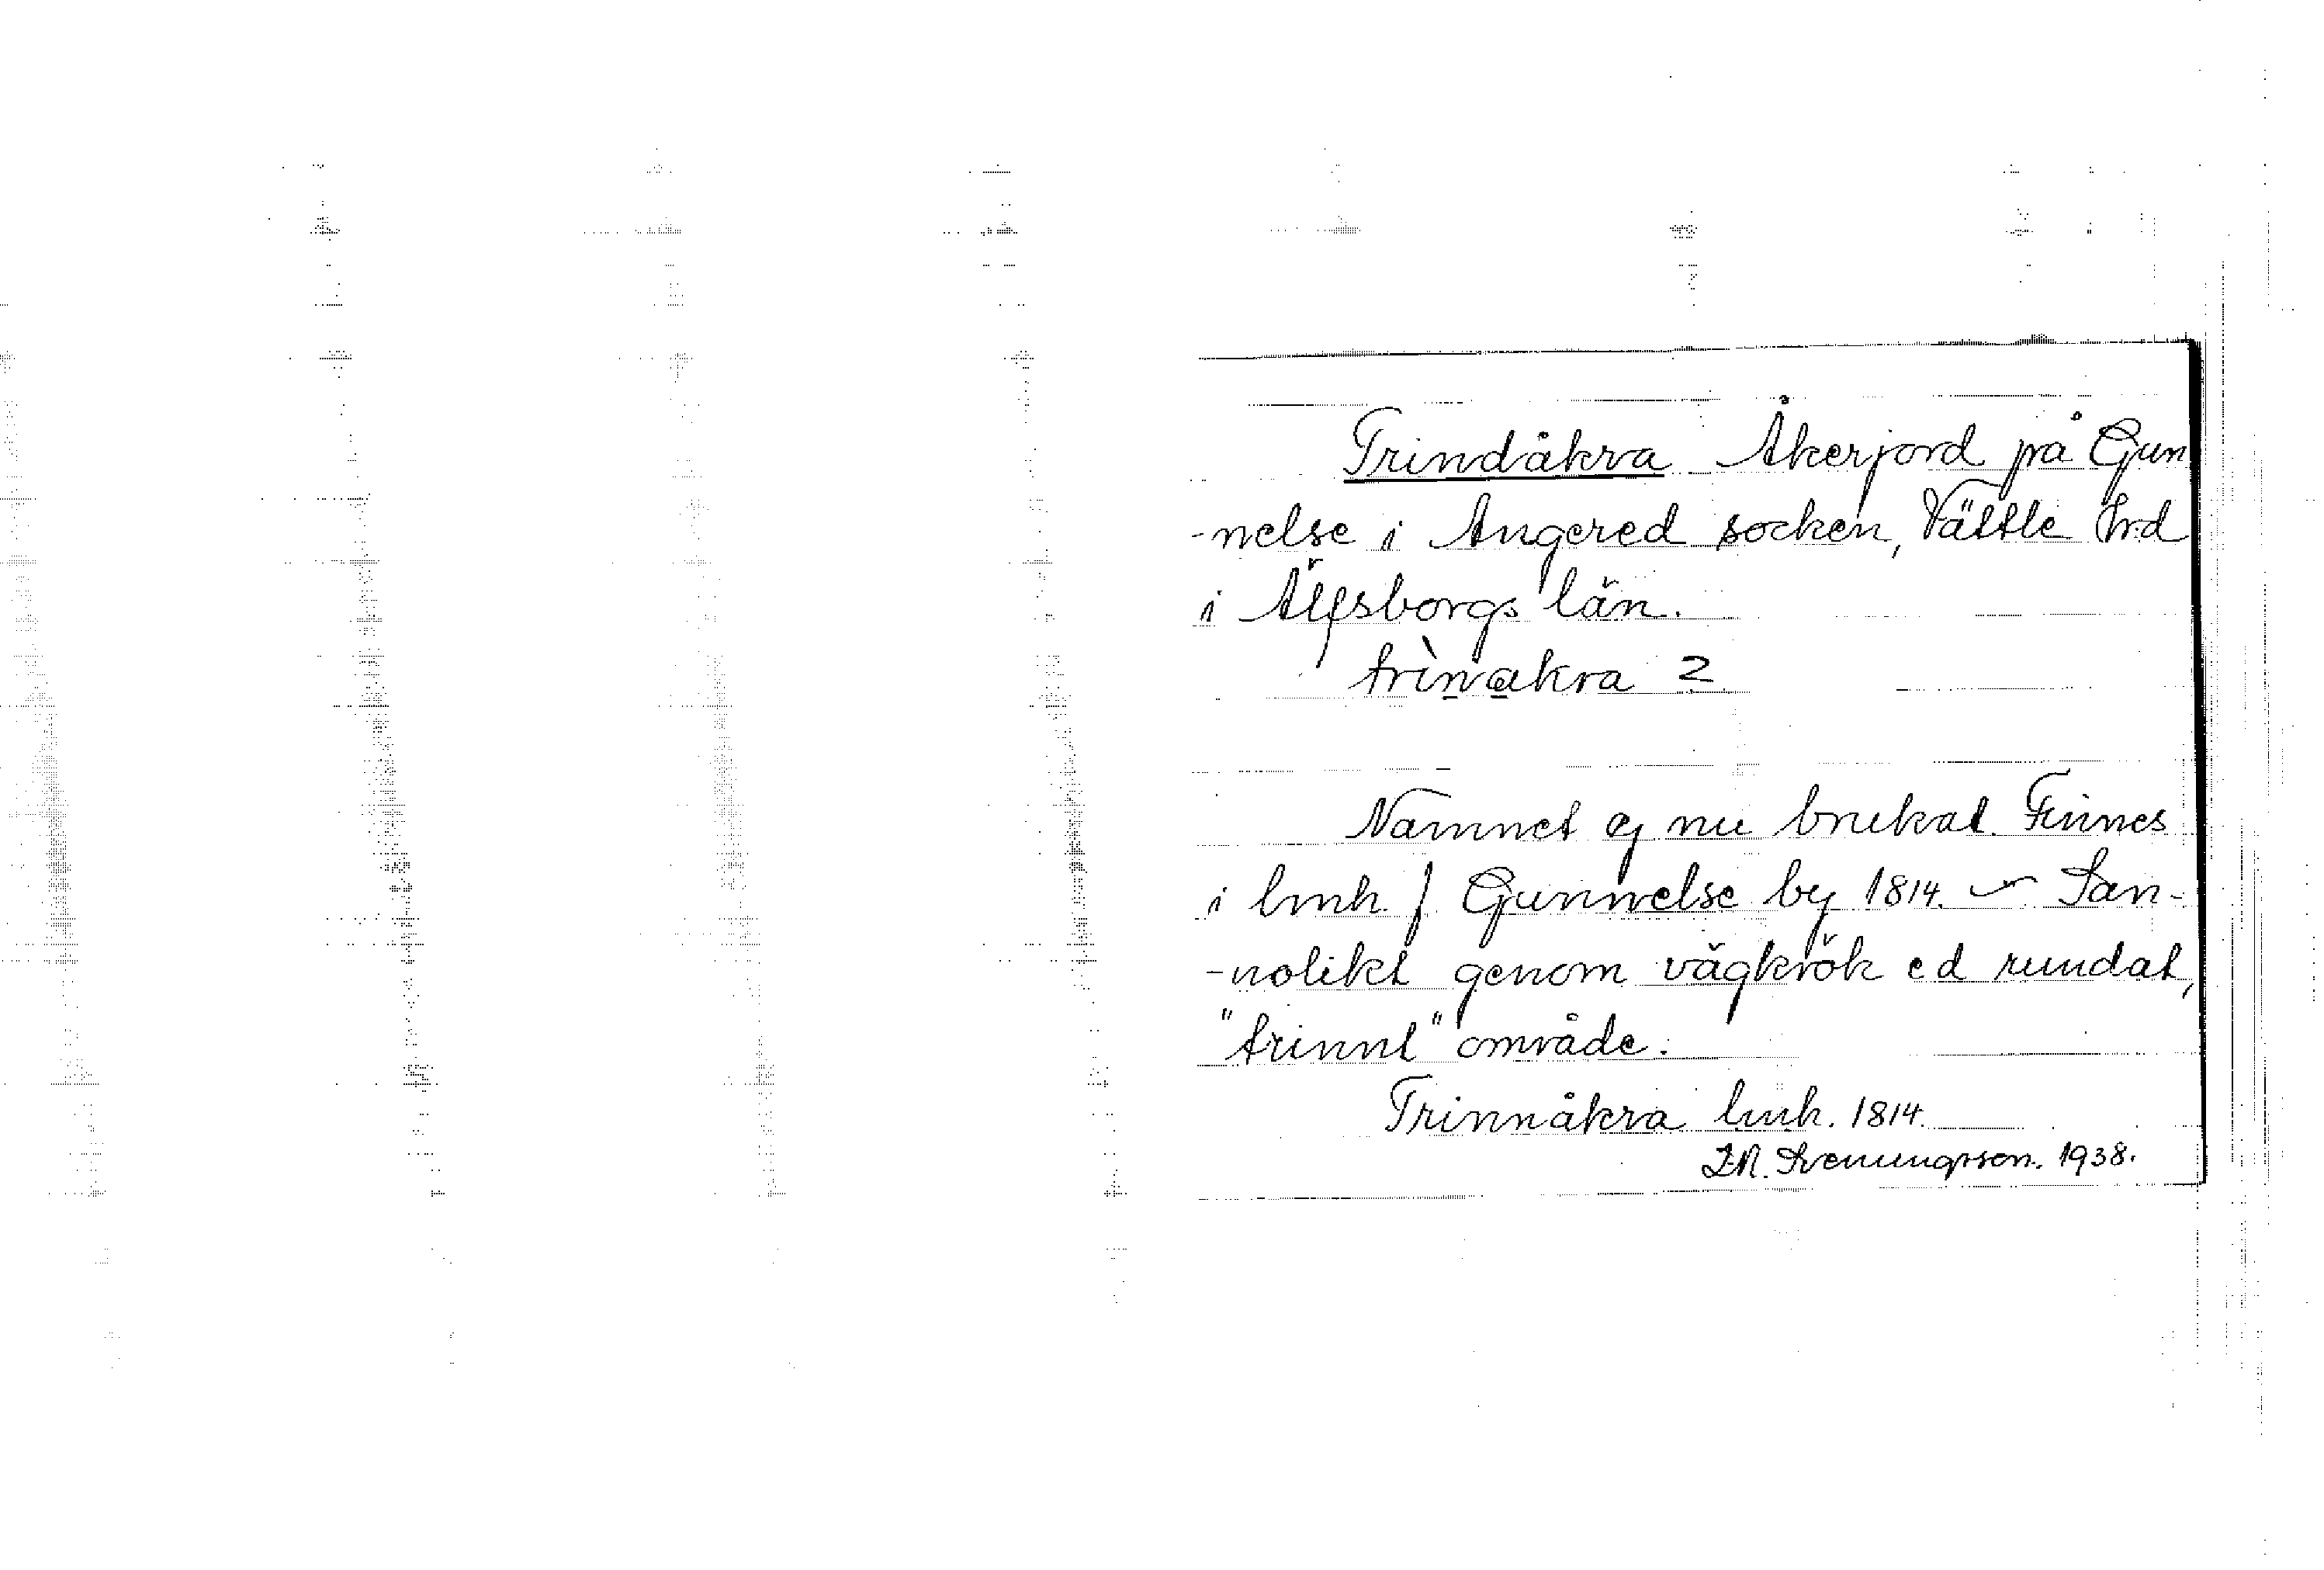 Trindåkra Åkerjord på Gun
-nelse i Angered socken, Vättle hrd
i Älfsborgs län.
trìnakra 2
Namnet ej nu brukat. Finnes
i lmh. f Gunnelse by 1814. ~ San-
-nolikt genom vägkrök ed rundat,
"trinnt" område.
Trinnåkra lmh. 1814.
1938.